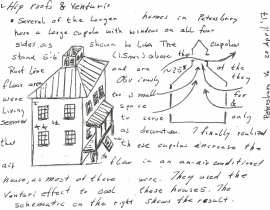 Hip roofs & Venturis
• Several of the larger homes in Petersburg
have a large cupola with windows on all four
sides. as shown below The cupolas
stand 5-6' (1.5m±) above the
Roof line and are ~25% of the
floor area Obviously they
were too small for a
living space &
seemed to serve only
as decoration. I finally realized
that these cupolas increase the
air flow in an un-air conditioned
house, as most of these were. They used the
Venturi effect to cool these houses. The
schematic on the right shows the result.
Petersburg 20 April 17